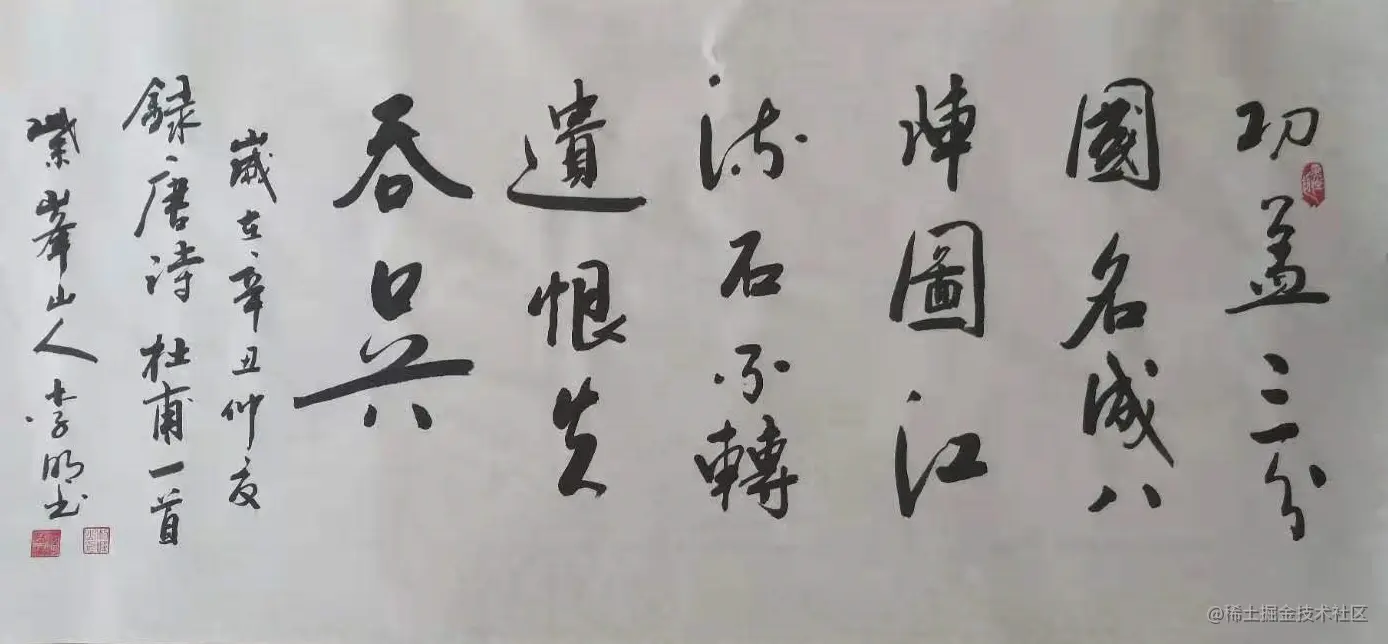 功盖三分
國名成八
陣圖江
流石不轉
遺恨失
吞吳
歲在辛丑仲夏
録唐詩杜甫一首
紫峯山人李明书
@稀土掘金技术社区